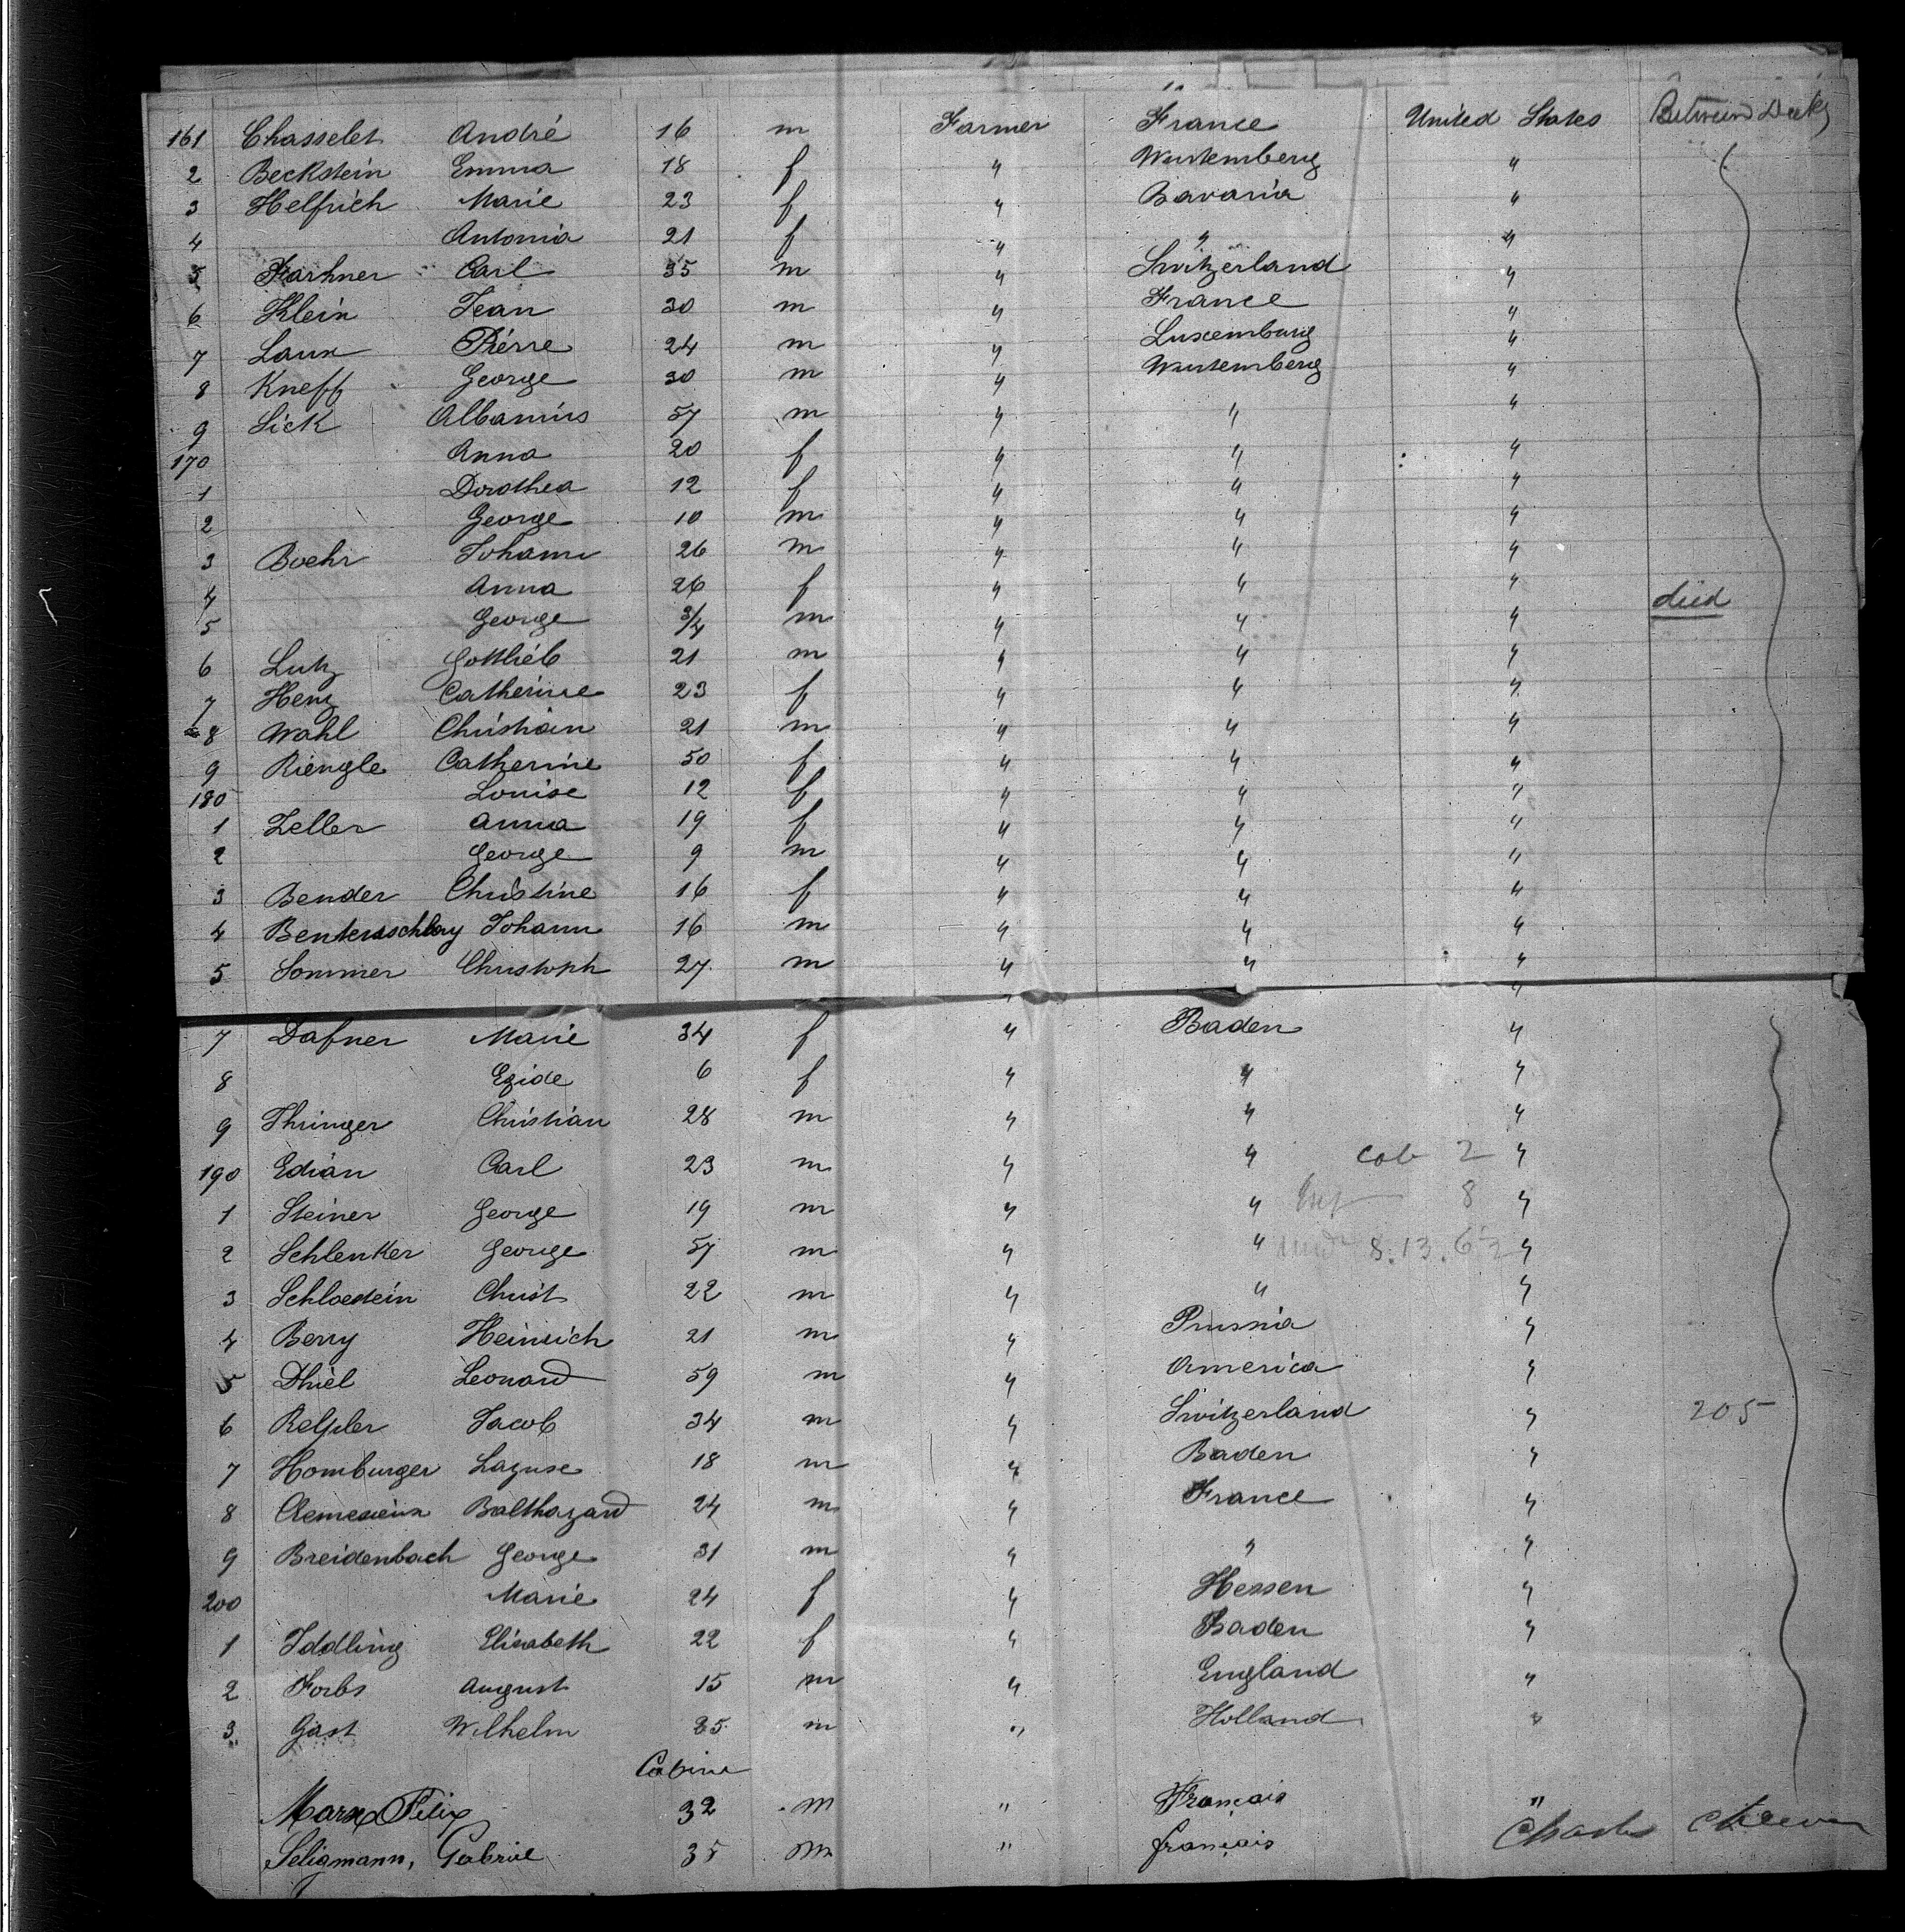 161 Chasselet André 16 m Farmer France United States Between Decks
2 Beckstein Emma 18 f " Wurtemberg "
3 Helfrich Marie 23 f " Bavaria "
4 Antonia 21 f " " "
5 Farhner Carl 35 m " Switzerland "
6 Klein Jean 30 m " France "
7 Laux Piérre 24 m " Luxemburg "
8 Kneff George 30 m " Wurtemberg "
9 Sick Albanus 57 m " " "
170 Anna 20 f " " "
1 Dorothea 12 f " " "
2 George 10 m " " "
3 Boehr Johann 26 m " " "
4 Anna 26 f " " "
5 George 3/4 m " " " died
6 Lutz Gottlieb 21 m " " "
7 Henz Catherine 23 f " " "
8 Wahl Christian 21 m " " "
9 Riengle Catherine 50 f " " "
180 Louise 12 f " " "
1 Zeller Anna 19 f " " "
2 George 9 m " " "
3 Bender Christine 16 f " " "
4 Johann 16 m " " "
5 Sommer Christoph 27 m " " "
" "
7 Dafner Marie 34 f " Baden "
8 Egide 6 f " " "
9 Thringer Christian 28 m " " "
190 Edian Carl 23 m " " cab 2 "
1 Steiner George 19 m " " 8 "
2 Schlenker George 57 m " " 8.13.62 "
3 Schloedein Christ 22 m " " "
4 Berry Heinrich 21 m " Prussia "
5 Thiel Leonard 59 m " America "
6 Jacob 34 m " Switzerland " 205
7 Homburger Lazuse 18 m " Baden "
8 Balthazard 24 m " France "
9 Breidenbach George 31 m " " "
200 Marie 24 f " Hessen "
1 Iddling Elisabeth 22 f " Baden "
2 Forbs August 15 m " England "
3 Gast Wilhelm 25 m " Holland "
Cabine
Marx Felix 32 m " Français "
Seligmann, Gabriel 35 m " français
Charles